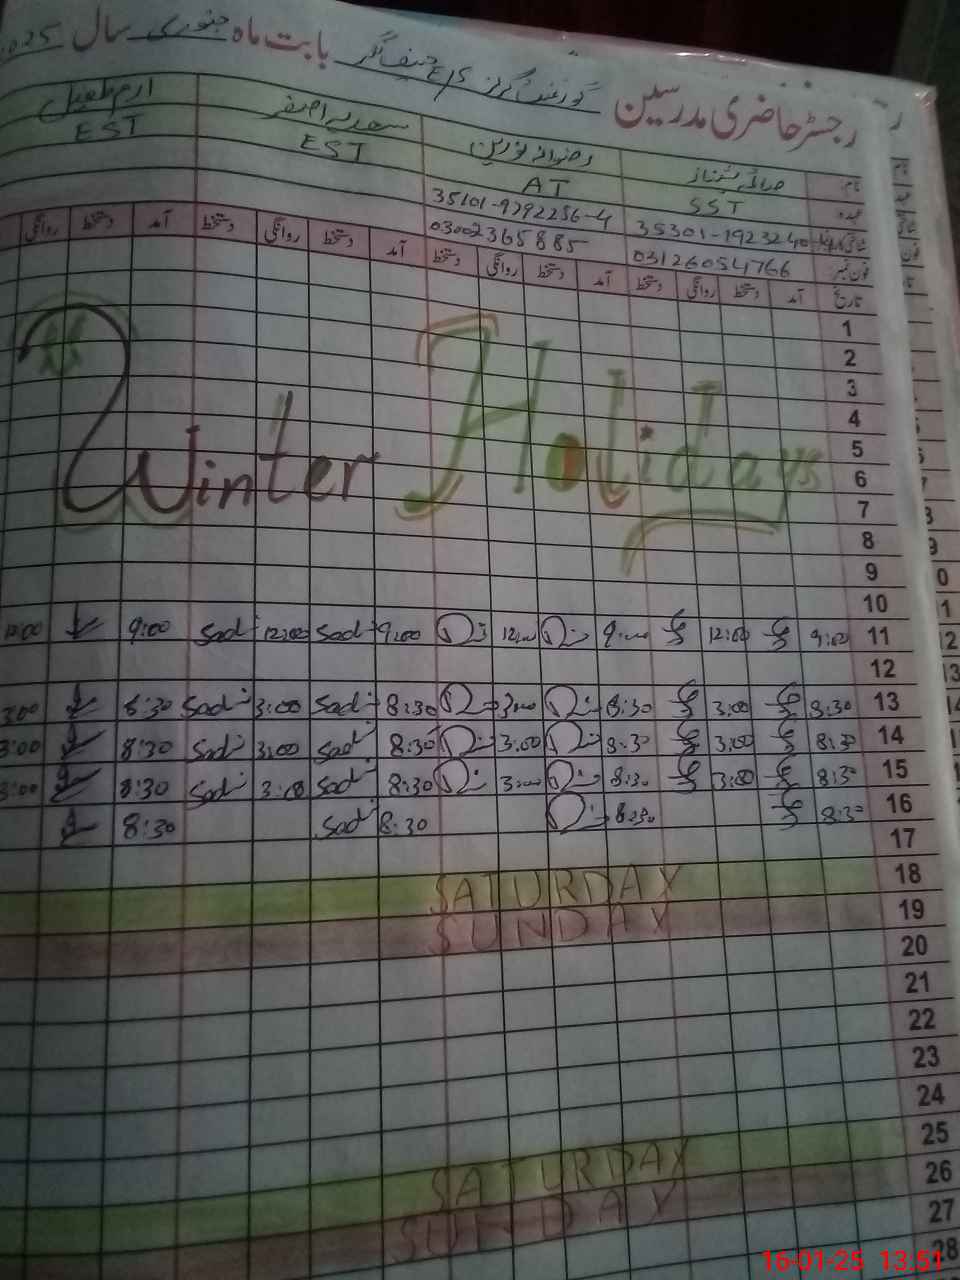 رجسٹر حاضری مدرسین گورنمنٹ گرلز E/S حنیف نگر بابت ماہ جنوری سال 2025
نام: صائمہ شہناز رضوانہ نورین سعدیہ اصغر ارم طفیل
عہدہ SST AT EST EST
35301-1923240 35101-9792256-4
فون نمبر: 03126054766 03002365885
تاریخ آمد دستخط روانگی دستخط آمد دستخط روانگی دستخط آمد دستخط روانگی دستخط آمد دستخط روانگی
1
2
3
4
5
6
7
Winter Holidays
8
9
10
11 9:00 12:00 9:00 12:00 9:00 Sad 12:00 Sad 9:00 12:00
12
13 8:30 3:00 8:30 3:00 8:30 Sad 3:00 Sad 8:30 3:00
14 8:30 3:00 8:30 3:00 8:30 Sad 3:00 Sad 8:30 3:00
15 8:30 3:00 8:30 3:00 8:30 Sad 3:00 Sad 8:30 3:00
16 8:30 8:30 8:30 Sad 8:30
17
18 SATURDAY
19 SUNDAY
20
21
22
23
24
25 SATURDAY
26 SUNDAY
27
28
16-01-25 13:51